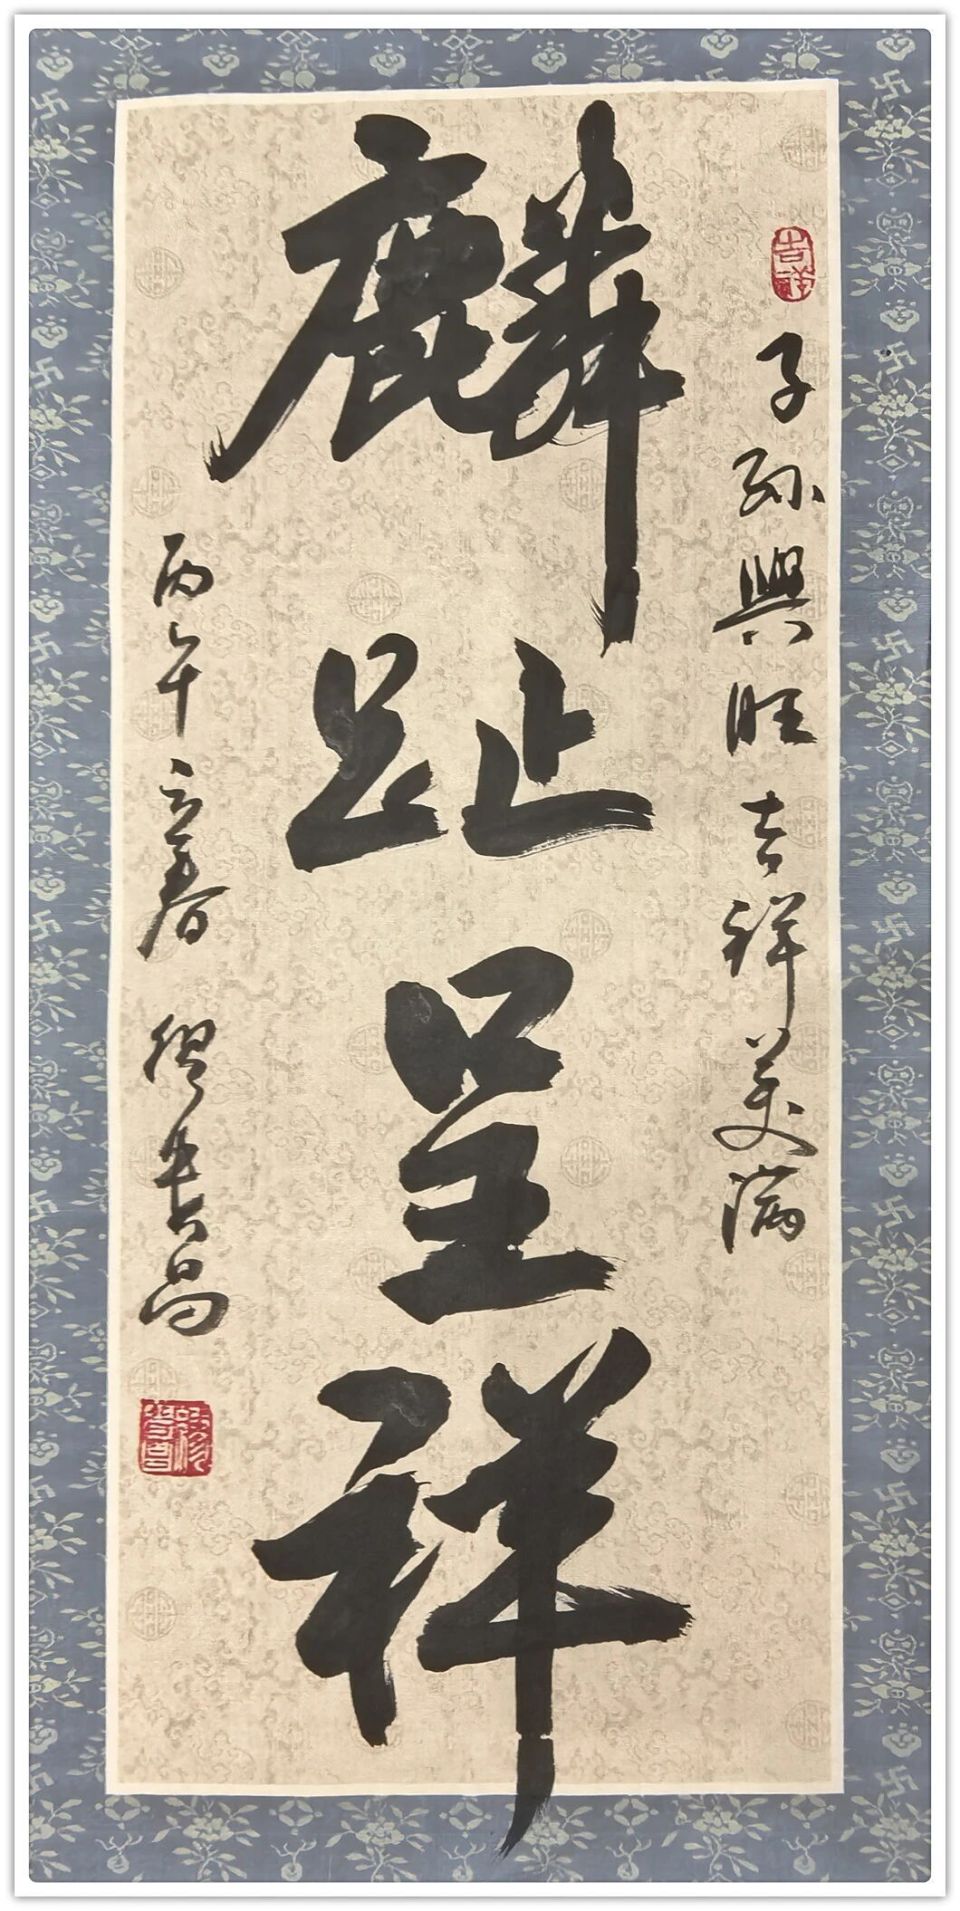 吉祥
子孫興旺吉祥美滿
麟趾呈祥
丙午立春